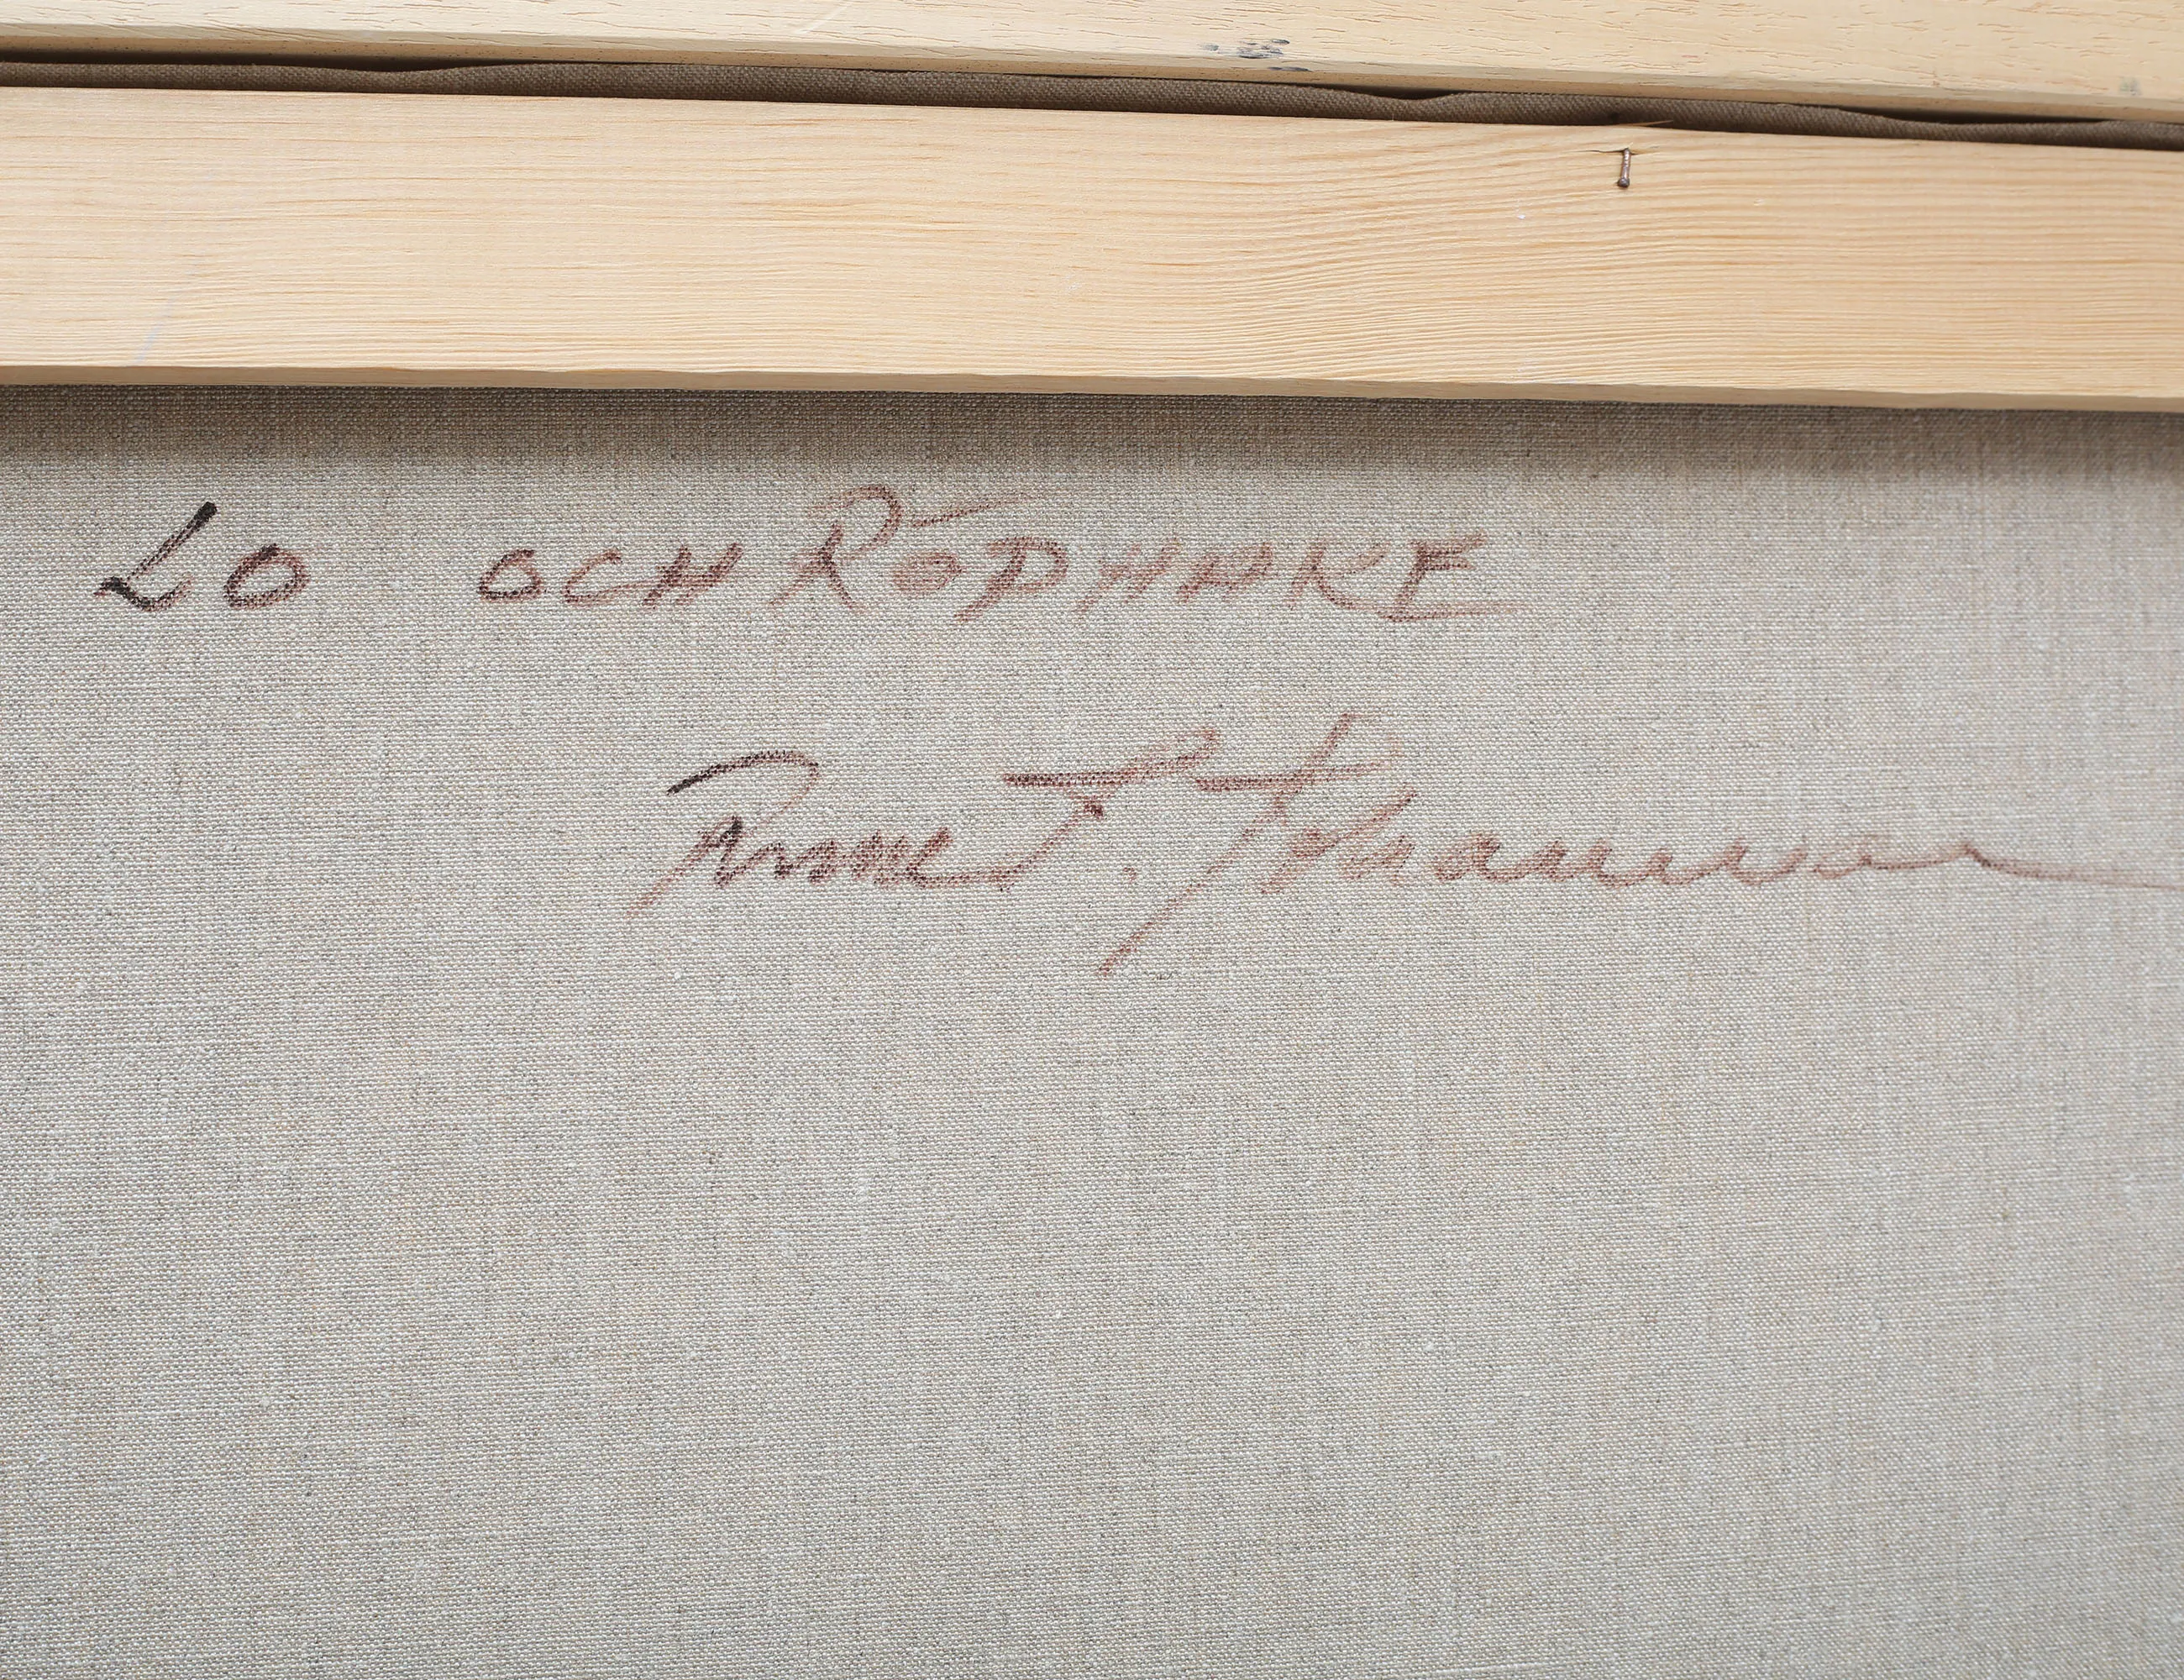 LO OCH RÖDHAKE
Rune Johansson